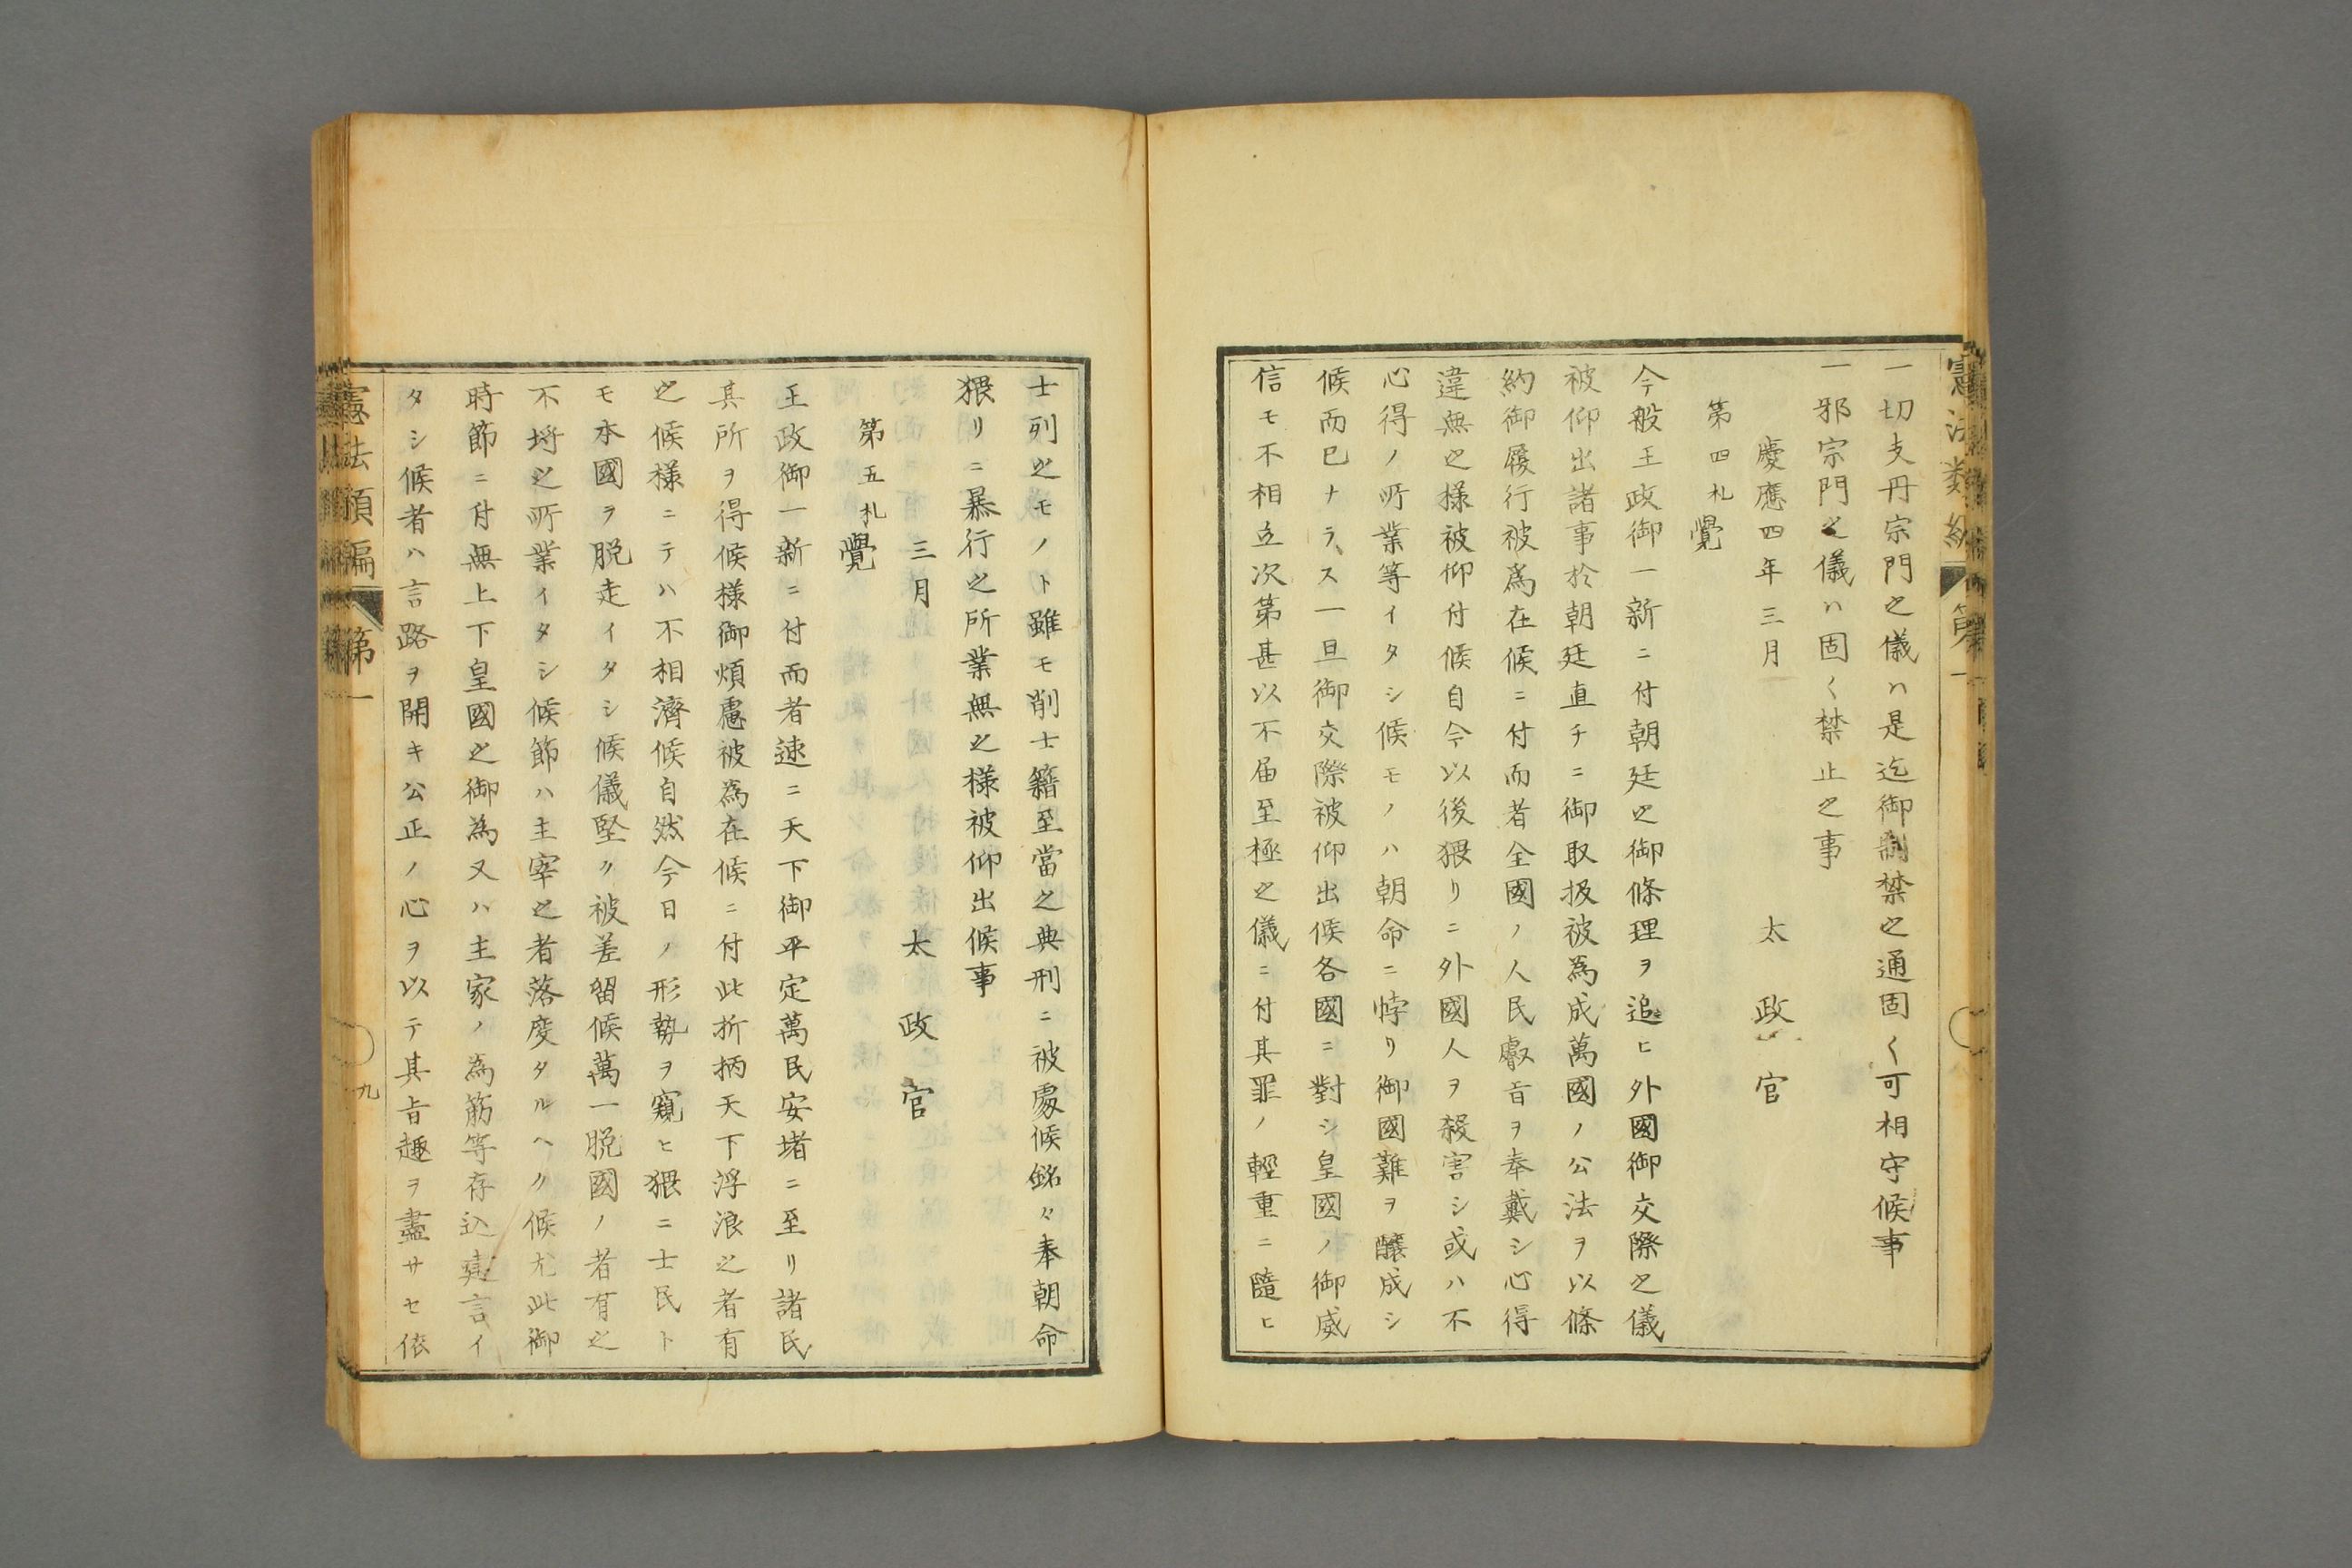 一切支丹宗門之儀ハ是迄御制禁之通固く可相守候事
一邪宗門之儀ハ固く禁止之事
慶應四年三月 太政官
第四札 覺
今般王政御一新ニ付朝廷之御條理ヲ追ヒ外國御交際之儀
被仰出諸事於朝廷直チニ御取扱被為成萬國ノ公法ヲ以條
約御履行被為在候ニ付而者全國ノ人民叡旨ヲ奉戴シ心得
違無之様被仰付候自今以後猥リニ外國人ヲ殺害シ或ハ不
心得ノ所業等イタシ候モノハ朝命ニ悖リ御國難ヲ醸成シ
候而已ナラス一旦御交際被仰出候各國ニ對シ皇國ノ御威
信モ不相立次第甚以不届至極之儀ニ付其罪ノ輕重ニ隨ヒ
士列之モノト雖モ削士籍至當之典刑ニ被處候銘々奉朝命
猥リニ暴行之所業無之様被仰出候事
三月 太政官
第五札 覺
王政御一新ニ付而者速ニ天下御平定萬民安堵ニ至リ諸民
其所ヲ得候様御煩慮被為在候ニ付此折柄天下浮浪之者有
之候様ニテハ不相濟候自然今日ノ形勢ヲ窺ヒ猥ニ士民ト
モ本國ヲ脱走イタシ候儀堅ク被差留候萬一脱國ノ者有之
不埒之所業イタシ候節ハ主宰之者落度タルヘク候尤此御
時節ニ付無上下皇國之御為又ハ主家ノ為筋等存込建言イ
タシ候者ハ言路ヲ開キ公正ノ心ヲ以テ其旨趣ヲ盡サセ依
憲法類編 第一
九